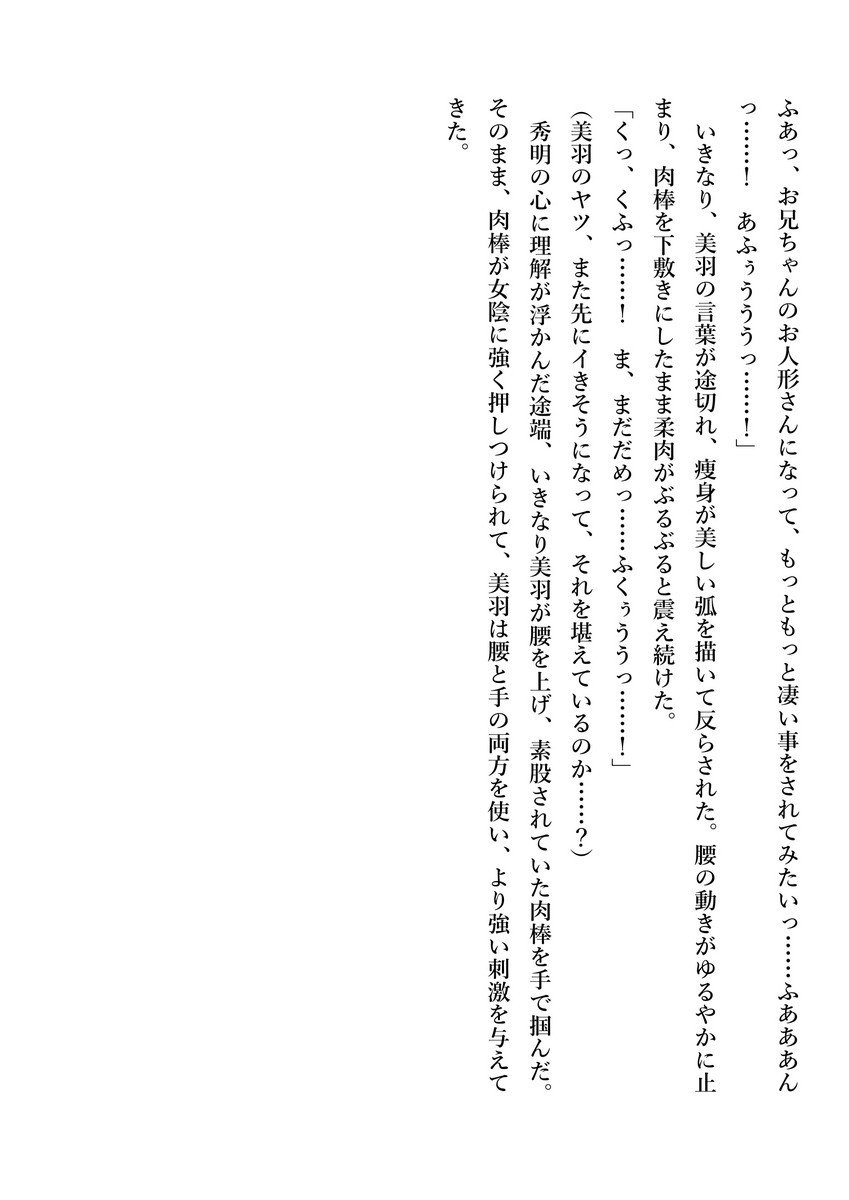 ふあっ、お兄ちゃんのお人形さんになって、もっともっと凄い事をされてみたいっ……ふあああん
っ……!　あふぅうううっ……!」
　いきなり、美羽の言葉が途切れ、痩身が美しい弧を描いて反らされた。腰の動きがゆるやかに止
まり、肉棒を下敷きにしたまま柔肉がぶるぶると震え続けた。
「くっ、くふっ……!　ま、まだだめっ……ふくぅううっ……!」
(美羽のヤツ、また先にイきそうになって、それを堪えているのか……?)
　秀明の心に理解が浮かんだ途端、いきなり美羽が腰を上げ、素股されていた肉棒を手で掴んだ。
そのまま、肉棒が女陰に強く押しつけられて、美羽は腰と手の両方を使い、より強い刺激を与えて
きた。